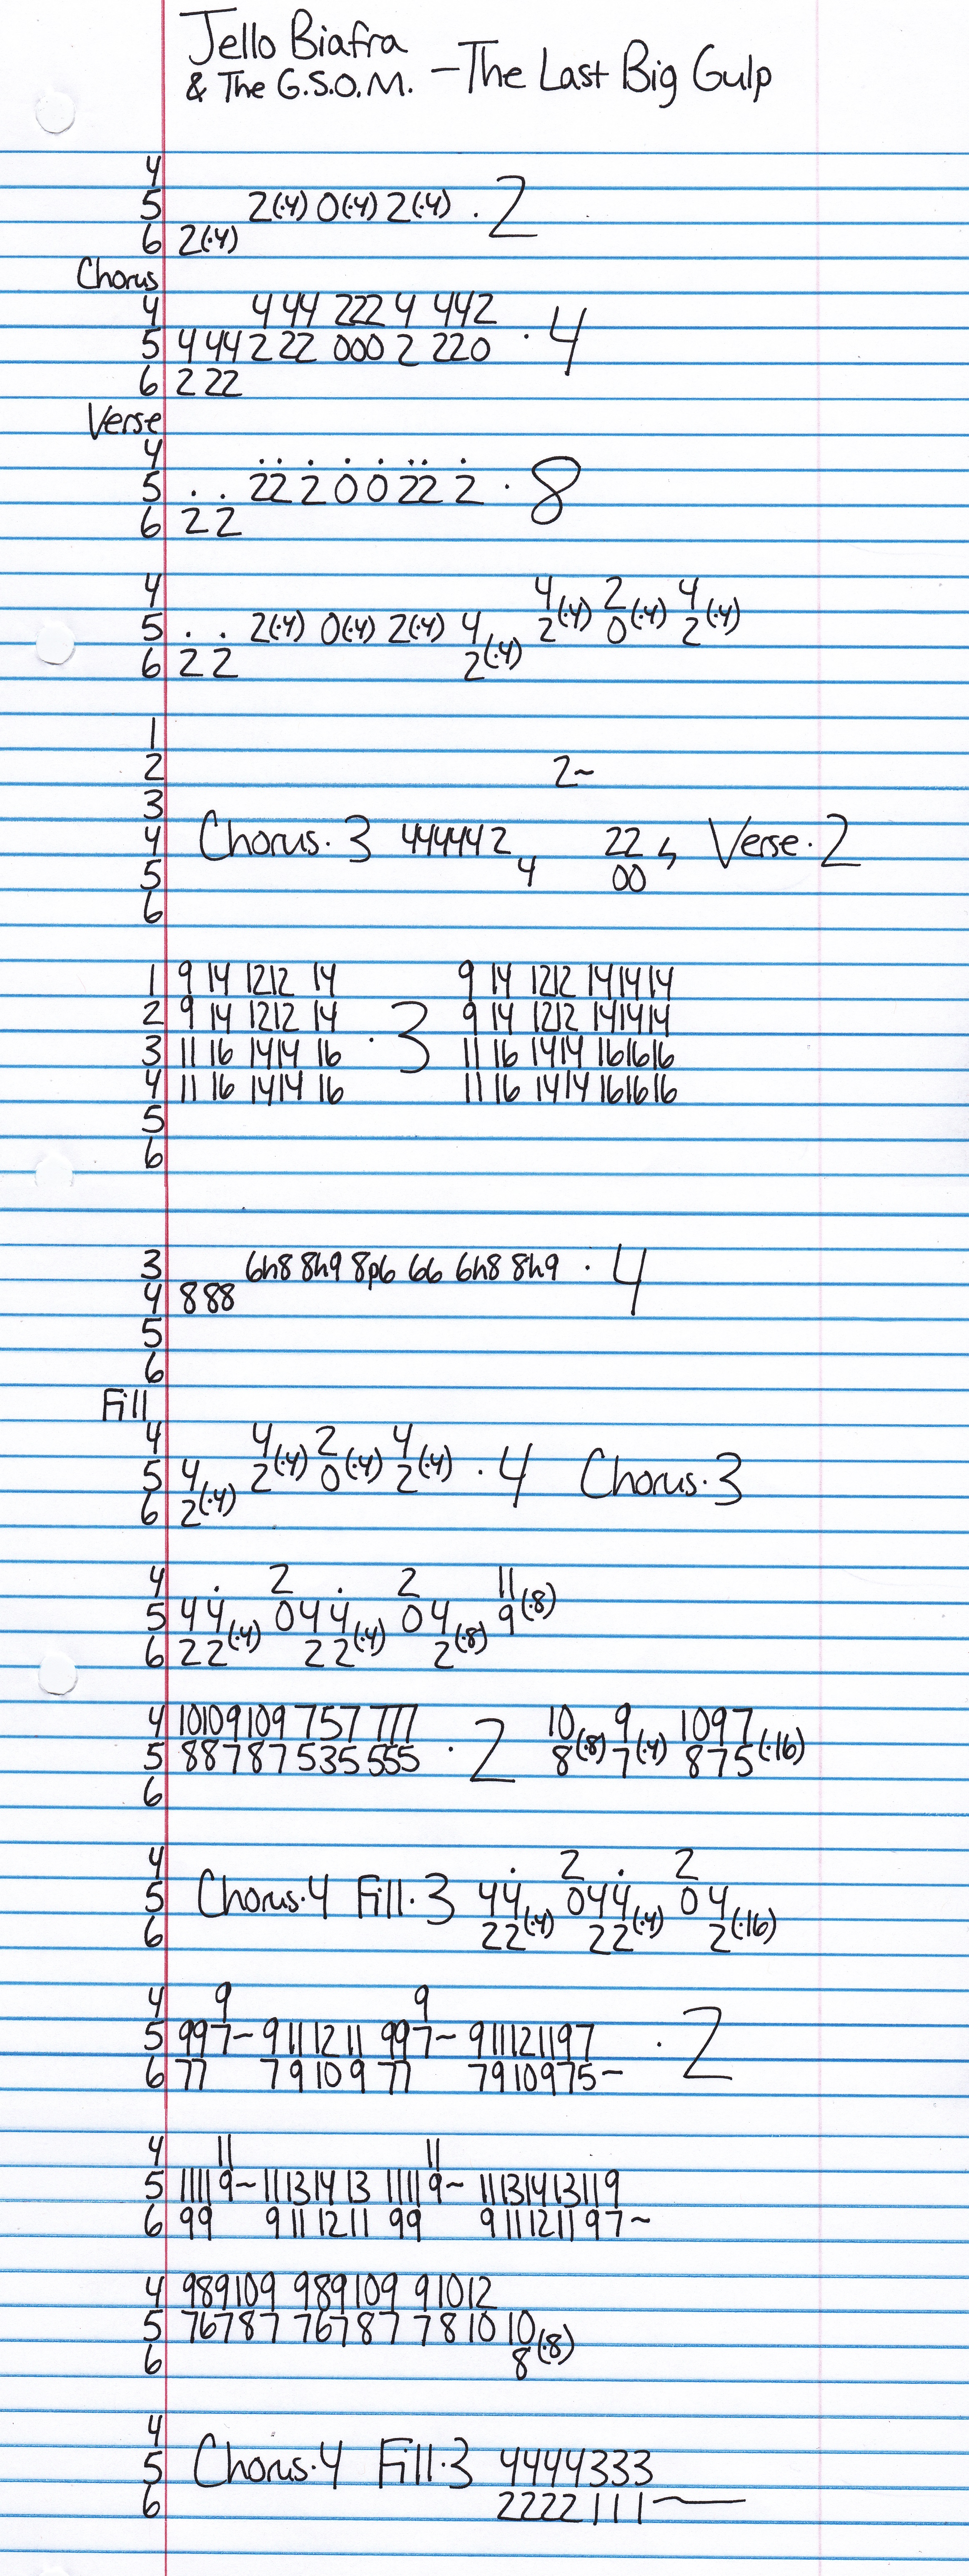 Jello Biafra
& The G.S.O.M. - The Last Big Gulp
4
5 2(·4) 0(·4) 2(·4) · 2
6 2(·4)
Chorus
4 4 44 222 4 442
5 4 44 2 22 000 2 220 · 4
6 2 22
Verse
4 . . . . . . . .
5 . . 22 2 0 0 22 2 · 8
6 2 2
4 4(·4) 2(·4) 4(·4)
5 . . 2(·4) 0(·4) 2(·4) 4 2 0 2
6 2 2 2(·4)
1
2 2~
3
4 Chorus·3 444442 22 ϟ Verse·2
5 4 00
6
1 9 14 1212 14 9 14 1212 141414
2 9 14 1212 14 · 3 9 14 1212 141414
3 11 16 1414 16 11 16 1414 161616
4 11 16 1414 16 11 16 1414 161616
5
6
3 6h8 8h9 8p6 66 6h8 8h9 · 4
4 888
5
6
Fill
4 4(·4) 2(·4) 4(·4)
5 4 2 0 2 · 4 Chorus·3
6 2(·4)
4 . 2 . 2 11(·8)
5 4 4 0 4 4 0 4 9
6 2 2(·4) 2 2(·4) 2(·8)
4 10109109 757 777 10 9 1097
5 88787535 555 · 2 8(·8) 7(·4) 875(·16)
6
4 . 2 . 2
5 Chorus·4 Fill·3 44 044 0 4
6 22(·4) 22(·4) 2(·16)
4 9 9
5 997~ 9 11 12 11 997~ 911121197 · 2
6 77 7 9 10 9 77 7910975~
4 11 11
5 11119~ 11131413 11119~ 11131413119
6 99 9 11 1211 99 9 11121197~
4 989109 989109 91012
5 76787 76787 7810 10
6 8(·8)
4
5 Chorus·4 Fill·3 4444333
6 2222111~